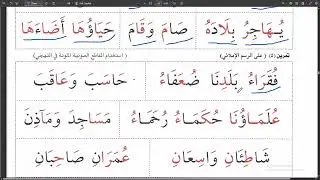 يُهَاجِرُ بِلَادَهُ صَامَ وَقَامَ حَيَاؤُهَا أَضَاءَهَا
تمرين (٥) ( على الرسم الإملائي ) ( استخدام المقاطع الصوتية الملونة في التهجي )
فُقَرَاءُ بَلَدِنَا ضُعَفَاءُ حَاسَبَ وَعَاقَبَ
عُلَمَاؤُنَا حُكَمَاءُ رُحَمَاءُ مَسَاجِدَ وَمَآذِنَ
شَاطِئَانِ وَاسِعَانِ عُمَرَانِ صَاحِبَانِ